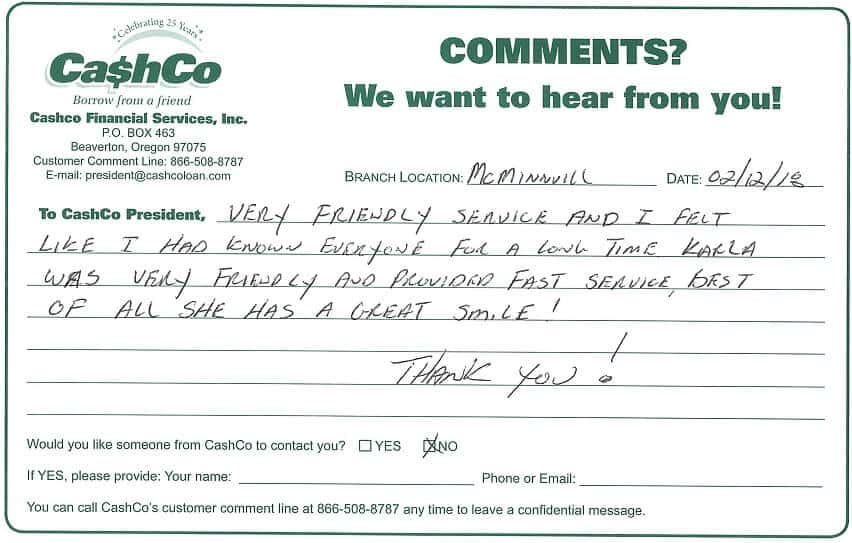 Celebrating 25 Years
Ca$hCo
Borrow from a friend
Cashco Financial Services, Inc.
P.O. BOX 463
Beaverton, Oregon 97075
Customer Comment Line: 866-508-8787
E-mail: president@cashcoloan.com
COMMENTS?
We want to hear from you!
BRANCH LOCATION: McMINNVILL DATE: 02/12/18
To CashCo President, VERY FRIENDLY SERVICE AND I FELT
LIKE I HAD KNOWN EVERYONE FOR A LONG TIME KARLA
WAS VERY FRIENDLY AND PROVIDED FAST SERVICE, BEST
OF ALL SHE HAS A GREAT SMILE!
THANK YOU!
Would you like someone from CashCo to contact you? ☐ YES ☒ NO
If YES, please provide: Your name: Phone or Email:
You can call CashCo's customer comment line at 866-508-8787 any time to leave a confidential message.